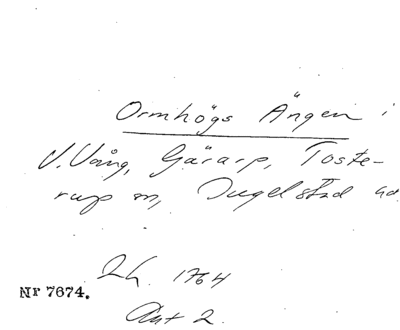 Ormhögs Ängen i
V. Vång, Gärarp, Toste-
rup m, Ingelstad hd.
Lh. 1764
Nr 7674.
Akt 2.